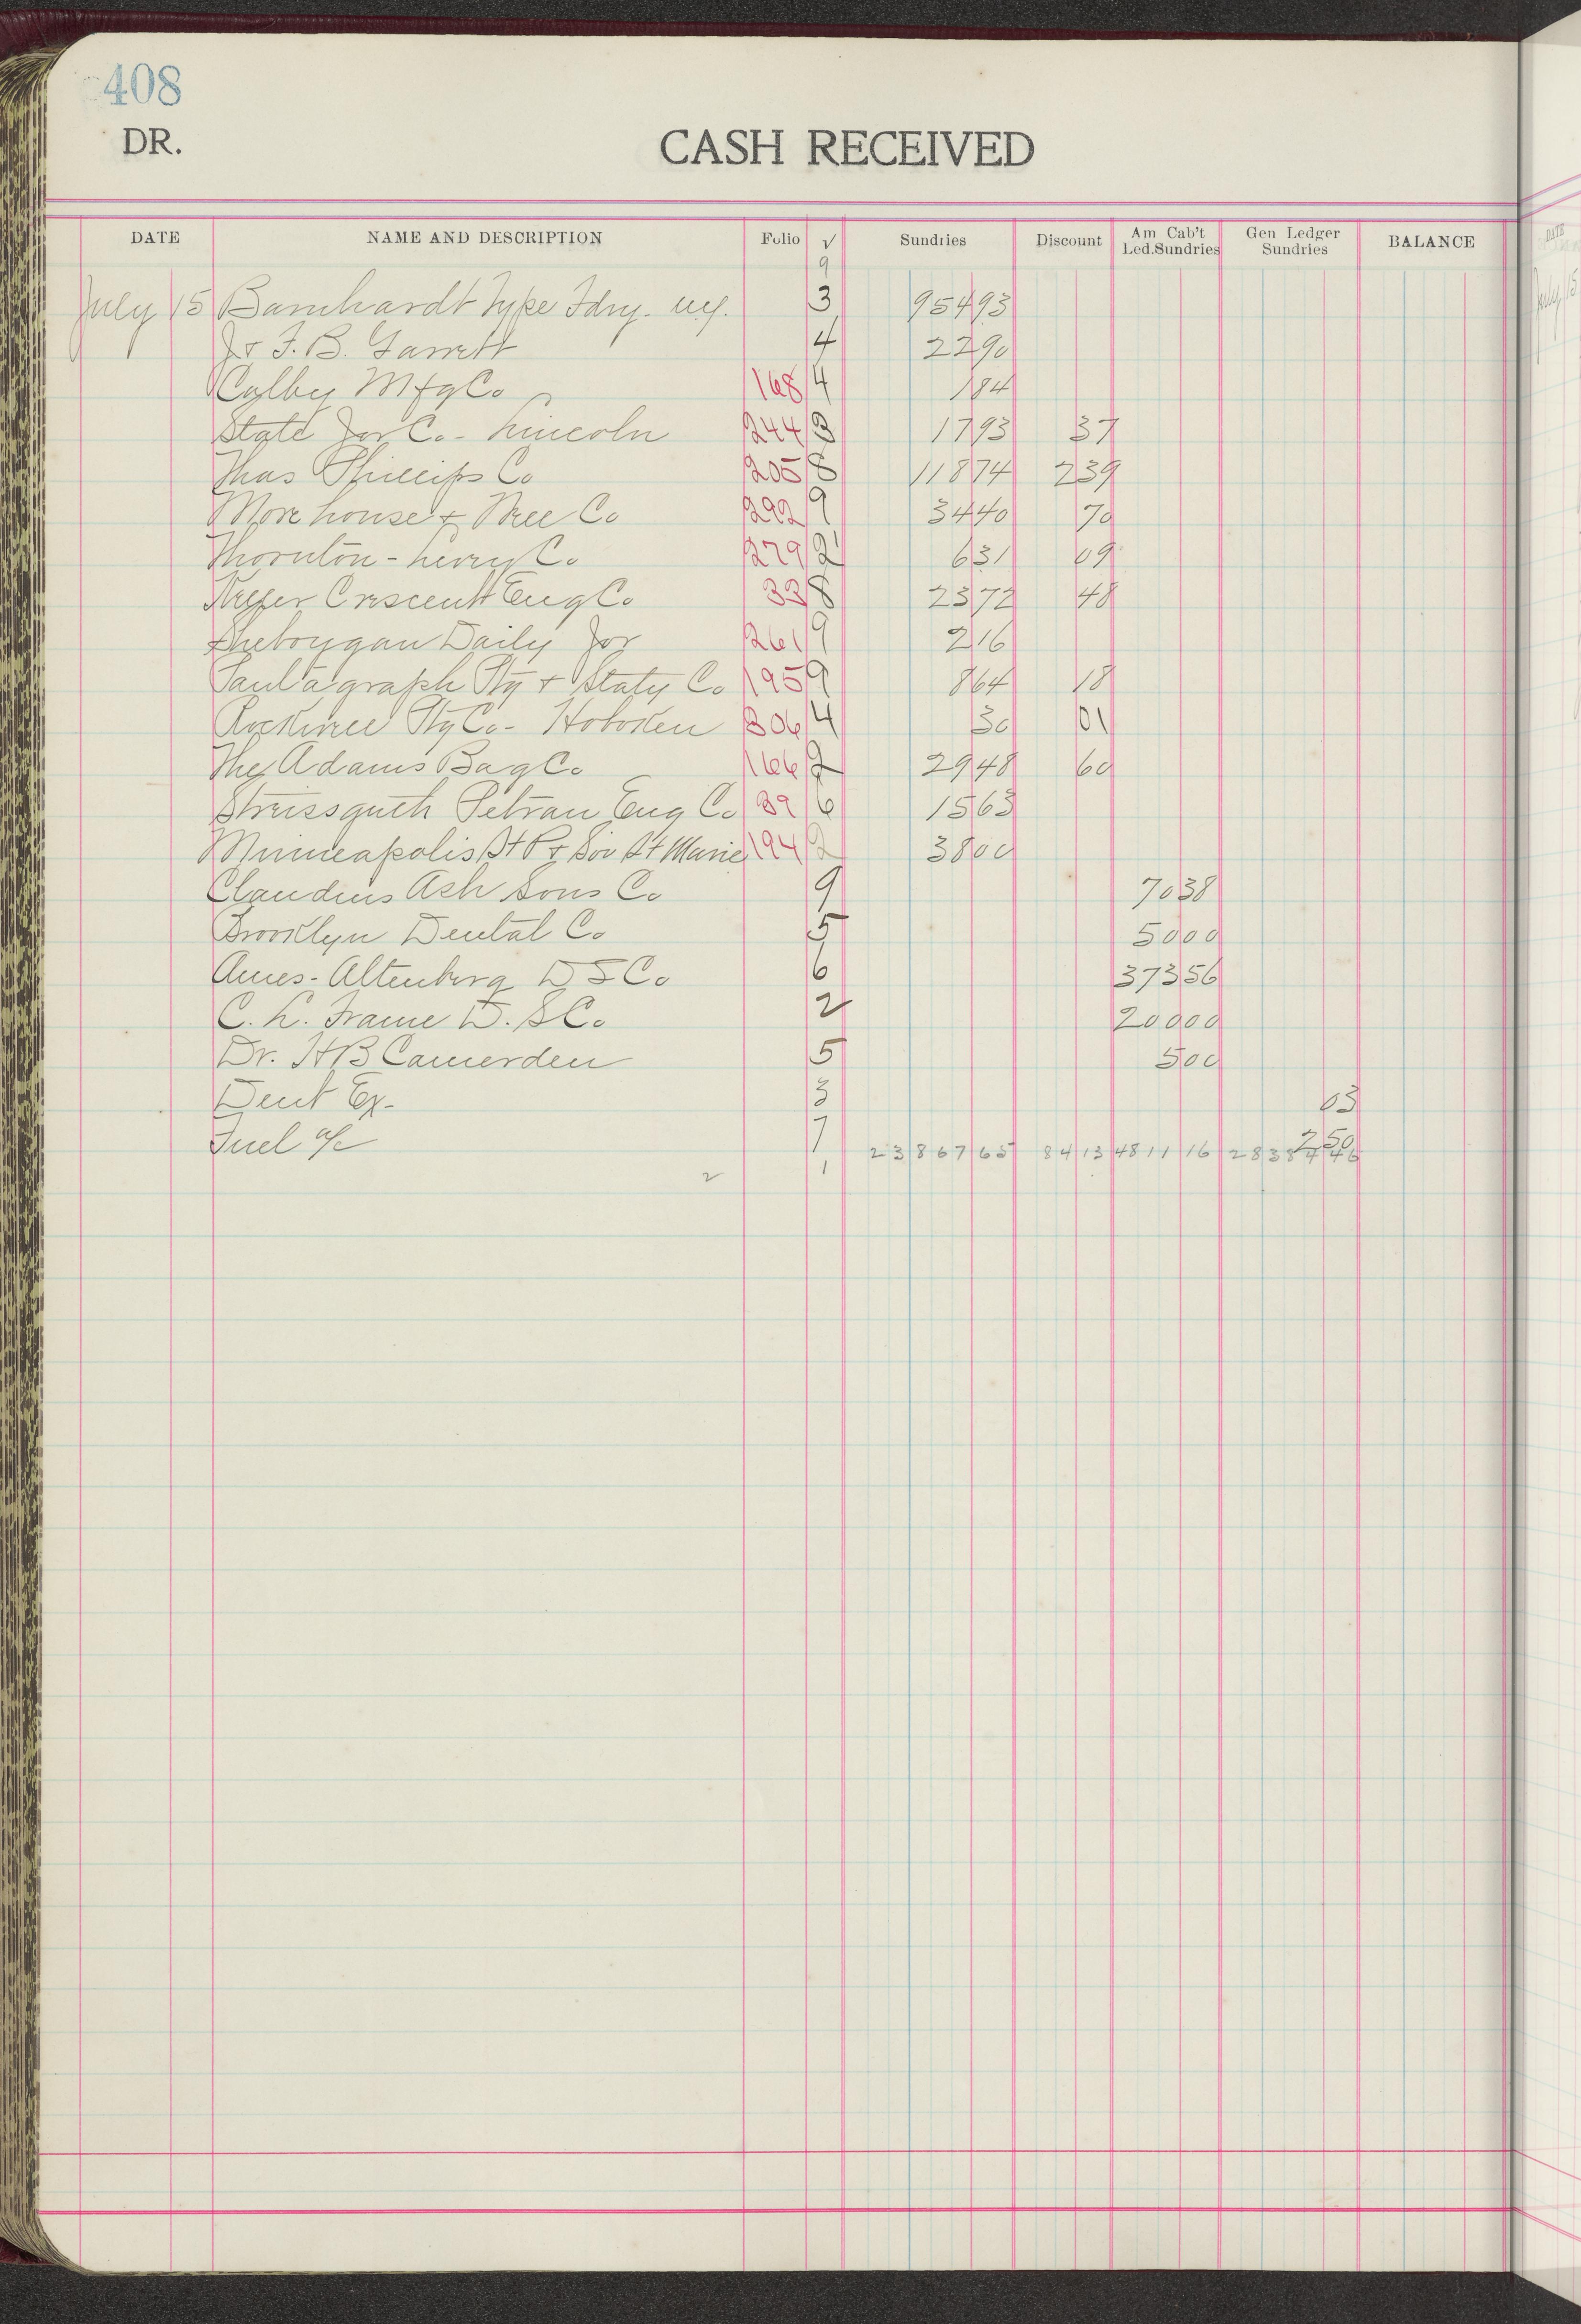 408
DR.
CASH RECEIVED
DATE NAME AND DESCRIPTION Folio √ Sundries Discount Am Cab't Led.Sundries Gen Ledger Sundries BALANCE
9
July 15 Barnhardt Type Fdry. NY. 3 954 93
J & F. B. Garrett 4 22 90
Colby Mfg Co 168 4 1 84
State Jor Co - Lincoln 244 3 17 93 37
Thas Phillips Co 205 8 118 74 2 39
Morehouse & Co 292 9 34 40 70
Thornton - Levey Co 279 2 6 31 09
Crescent Eng Co 33 8 23 72 48
Sheboygan Daily Jor 261 9 2 16
Pantagraph Ptg & Staty Co 195 9 8 64 18
Ptg Co - Hoboken 306 4 30 01
The Adams Bag Co 166 2 29 48 60
Streissguth Petran Eng Co 39 6 15 63
Minneapolis St P & Soo St Marie 194 2 38 00
Claudius Ash Sons Co 9 70 38
Brooklyn Dental Co 5 50 00
Ames - Altenberg D S Co 6 373 56
C. L. Frame D. S Co 2 200 00
Dr. H B Camerden 5 5 00
Dent Ex - 3 03
Fuel a/c 7 2 50
23867 65 84 13 4811 16 28384 46
2 1